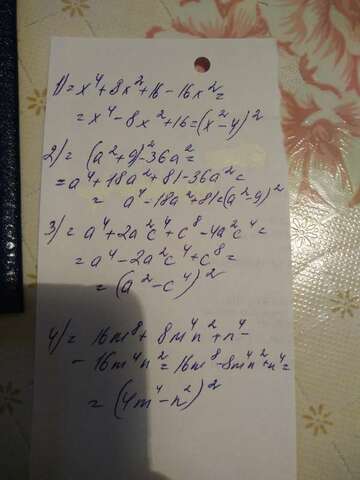 1) = x⁴ + 8x² + 16 - 16x² =
= x⁴ - 8x² + 16 = (x² - 4)²
2) = (a² + 9)² - 36a² =
= a⁴ + 18a² + 81 - 36a² =
= a⁴ - 18a² + 81 = (a² - 9)²
3) = a⁴ + 2a²c⁴ + c⁸ - 4a²c⁴ =
= a⁴ - 2a²c⁴ + c⁸ =
= (a² - c⁴)²
4) = 16m⁸ + 8m⁴n² + n⁴ -
- 16m⁴n² = 16m⁸ - 8m⁴n² + n⁴ =
= (4m⁴ - n²)²